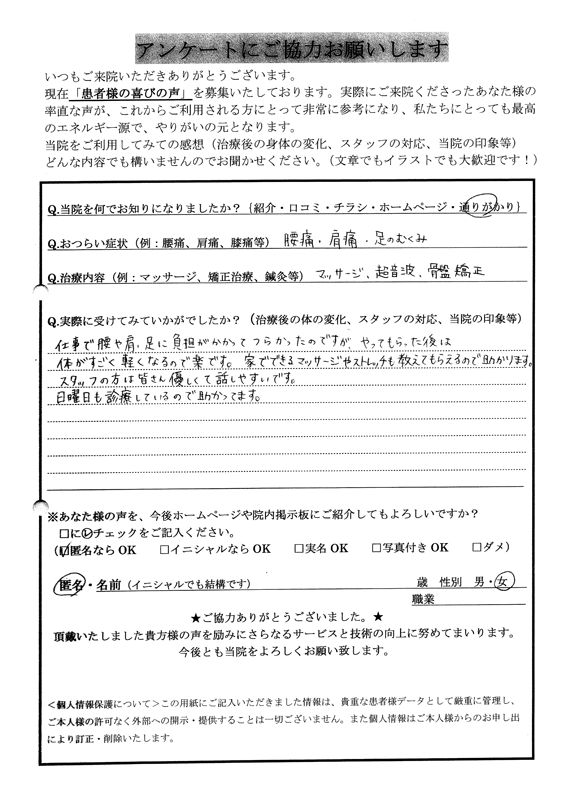 アンケートにご協力お願いします
いつもご来院いただきありがとうございます。
現在「患者様の喜びの声」を募集いたしております。実際にご来院くださったあなた様の
率直な声が、これからご利用される方にとって非常に参考になり、私たちにとっても最高
のエネルギー源で、やりがいの元となります。
当院をご利用してみての感想（治療後の身体の変化、スタッフの対応、当院の印象等）
どんな内容でも構いませんのでお聞かせください。（文章でもイラストでも大歓迎です！）
Q.当院を何でお知りになりましたか？｛紹介・口コミ・チラシ・ホームページ・通りがかり｝
Q.おつらい症状（例：腰痛、肩痛、膝痛等） 腰痛・肩痛・足のむくみ
Q.治療内容（例：マッサージ、矯正治療、鍼灸等） マッサージ、超音波、骨盤矯正
Q.実際に受けてみていかがでしたか？（治療後の体の変化、スタッフの対応、当院の印象等）
仕事で腰や肩、足に負担がかかってつらかったのですが、やってもらった後は
体がすごく軽くなるので楽です。家でできるマッサージやストレッチも教えてもらえるので助かります。
スタッフの方は皆さん優しくて話しやすいです。
日曜日も診療しているので助かってます。
※あなた様の声を、今後ホームページや院内掲示板にご紹介してもよろしいですか？
□に✓チェックをご記入ください。
（☑匿名なら OK □イニシャルなら OK □実名 OK □写真付き OK □ダメ）
匿名・名前（イニシャルでも結構です） 歳 性別 男・女
職業
★ご協力ありがとうございました。★
頂戴いたしました貴方様の声を励みにさらなるサービスと技術の向上に努めてまいります。
今後とも当院をよろしくお願い致します。
＜個人情報保護について＞この用紙にご記入いただきました情報は、貴重な患者様データとして厳重に管理し、
ご本人様の許可なく外部への開示・提供することは一切ございません。また個人情報はご本人様からのお申し出
により訂正・削除いたします。